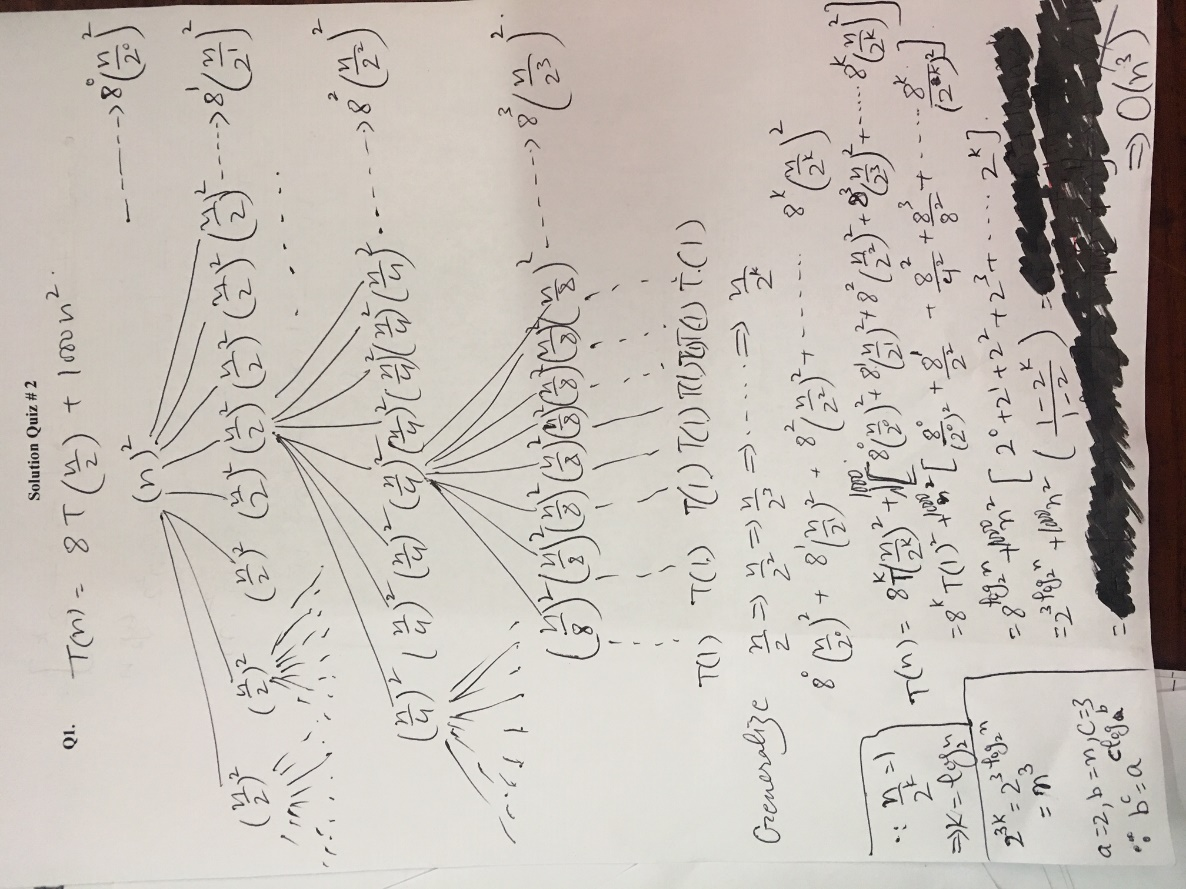 Solution Quiz # 2
Q1. T(n) = 8 T (n/2) + 1000 n².
(n)² ------> 8⁰(n/2⁰)²
(n/2)² (n/2)² (n/2)² (n/2)² (n/2)² (n/2)² (n/2)² (n/2)² ----> 8¹(n/2¹)²
(n/4)² (n/4)² (n/4)² (n/4)² (n/4)² (n/4)² (n/4)² (n/4)² ----> 8² (n/2²)²
(n/8)² (n/8)² (n/8)² (n/8)² (n/8)² (n/8)² (n/8)² (n/8)² -----> 8³ (n/2³)².
T(1) T(1) T(1) T(1) T(1) T(1) T(1) T(1)
Generalize n/2 => n/2² => n/2³ => ...... => n/2^k
8⁰ (n/2⁰)² + 8¹(n/2¹)² + 8²(n/2²)² + ....... 8^k (n/2^k)²
T(n) = 8^k T(n/2^k)² + 1000 [8⁰(n/2⁰)² + 8¹(n/2¹)² + 8²(n/2²)² + 8³(n/2³)² + ..... 8^k(n/2^k)²]
= 8^k T(1)² + 1000 n² [8⁰/(2⁰)² + 8¹/2² + 8²/4² + 8³/8² + ..... 8^k/(2^k)²]
= 8^log₂n + 1000 n² [2⁰ + 2¹ + 2² + 2³ + ..... 2^k].
= 2^3log₂n + 1000 n² (1 - 2^k / 1 - 2) =
=
=> O(n³)
∵ n/2^k = 1
=> k = log₂n
2^3k = 2^3log₂n
= n³
a = 2, b = n, c = 3
∵ b^c = a^clog_a b